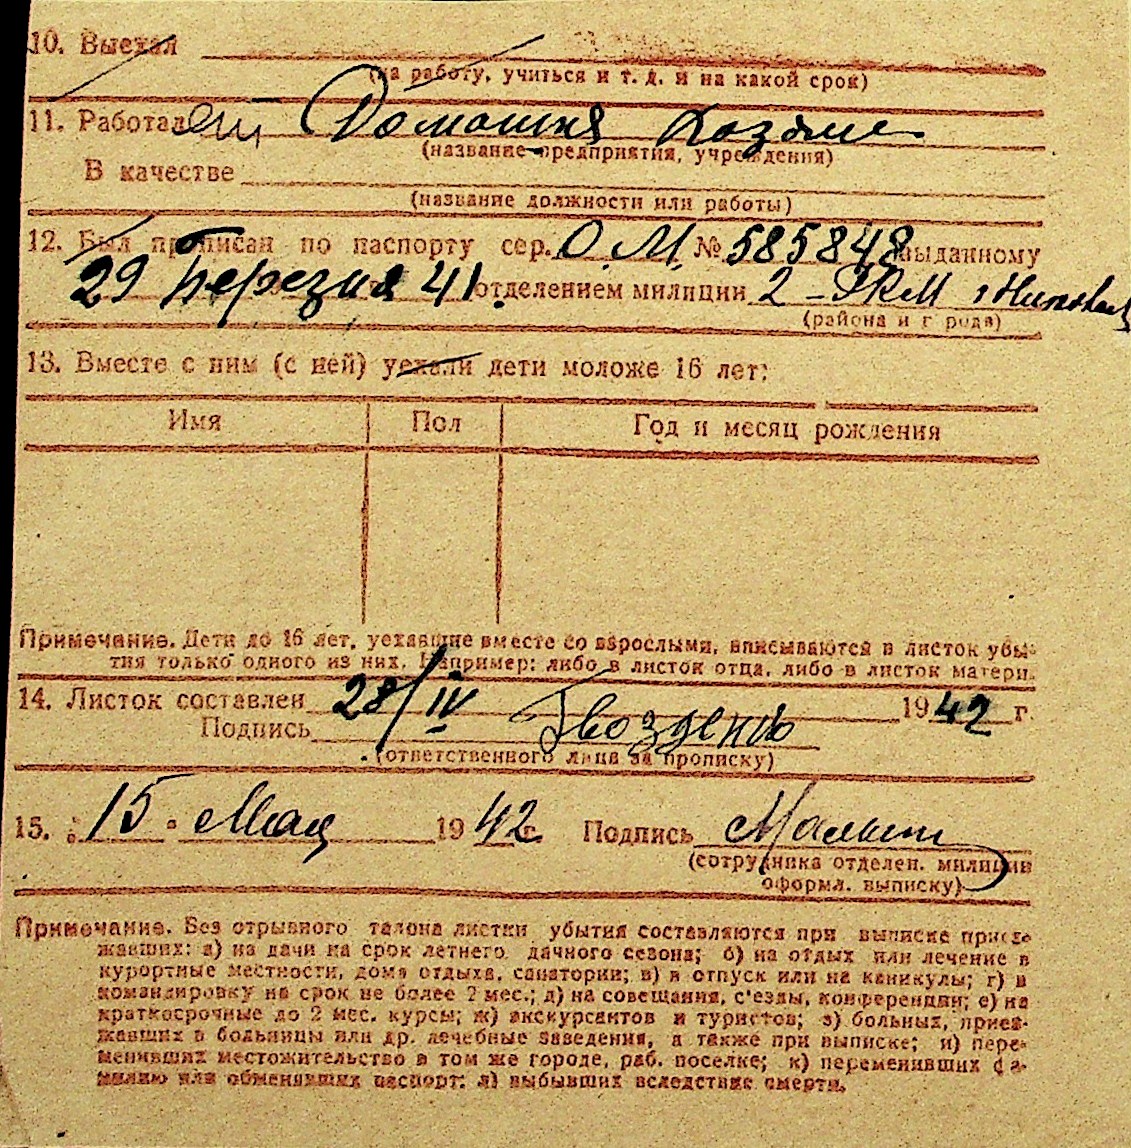 10. Выехал
(на работу, учиться и т. д. и на какой срок)
11. Работал Домашня
(название предприятия, учреждения)
В качестве
(название должности или работы)
12. Был прописан по паспорту сер. О.М. № 585848 выданному
29 Березня 41. отделением милиции 2 - РКМ
(района и города)
13. Вместе с ним (с ней) уехали дети моложе 16 лет:
Имя Пол Год и месяц рождения
Примечание. Дети до 16 лет, уехавшие вместе со взрослыми, вписываются в листок убы-
тия только одного из них. Например: либо в листок отца, либо в листок матери.
14. Листок составлен 28/IV 1942 г.
Подпись Гвоздень
(ответственного лица за прописку)
15. "15" Мая 1942 г. Подпись
(сотрудника отделен. милиции
оформл. выписку)
Примечание. Без отрывного талона листки убытия составляются при выписке приез-
жавших: а) на дачи на срок летнего дачного сезона; б) на отдых или лечение в
курортные местности, дома отдыха, санатории; в) в отпуск или на каникулы; г) в
командировку на срок не более 2 мес.; д) на совещания, с'езды, конференции; е) на
краткосрочные до 2 мес. курсы; ж) экскурсантов и туристов; з) больных, приез-
жавших в больницы или др. лечебные заведения, а также при выписке; и) пере-
менивших местожительство в том же городе, раб. поселке; к) переменивших фа-
милию или обменявших паспорт; л) выбывших вследствие смерти.